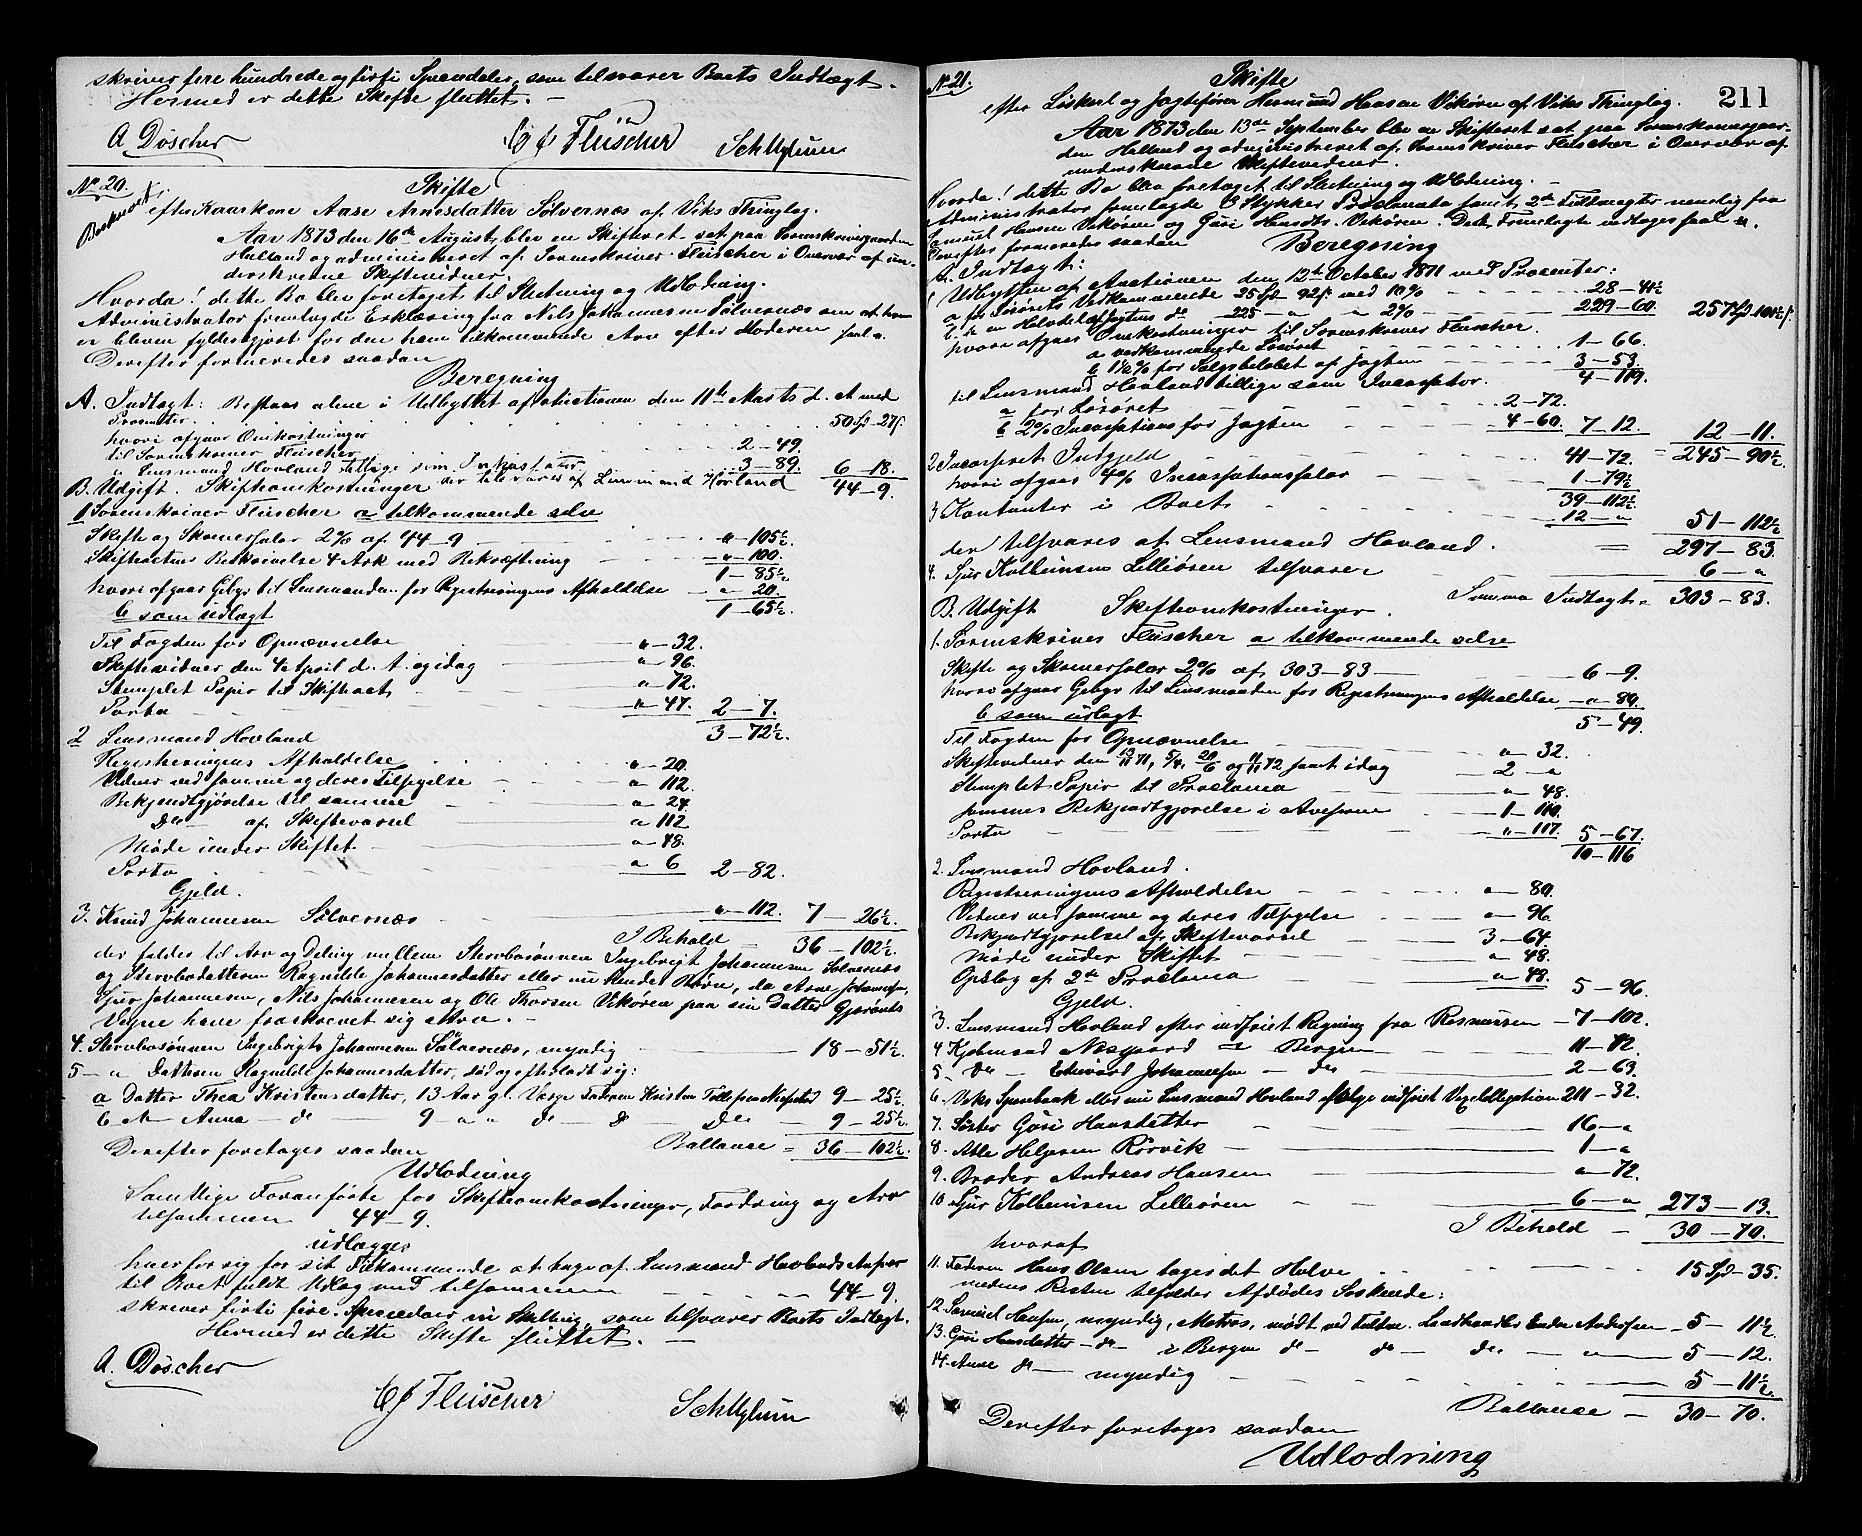 skriver fire hundrede og firti Speciedaler, som tilsvarer Boets Indtægt.
Hermed er dette Skifte sluttet. —
A. Döscher
CJ Fleischer
Sch Uglum
No 20.
Skifte
efter Kaarkone Aase Arnesdatter Sølvernæs af Viks Thinglag.
Aar 1873 den 16de August, blev en Skifteret sat paa Sorenskrivergaarden
Helland og administreret af Sorenskriver Fleischer i Overvær af un-
derskrevne Skiftevidner.
Hvorda! dette Bo blev foretaget til Slutning og Udlodning.
Administrator fremlagde Erklæring fra Nils Johannesen Sølvernæs om at han
er bleven fyldestgjort for den ham tilkommende Arv efter Moderen saal. a.
Derefter formeredes saadan
Beregning
A. Indtægt: Bestaar alene i Udbyttet af Auctionen den 11te Marts d. A. med
Prosenter 50 Sp - 27 s.
hvori afgaar Omkostninger
til Sorenskriver Fleischer 2 - 49.
" Lensmand Hovland tillige som Inkassator 3 - 89. 6 - 18.
der tilsvares af Lensmand Hovland 44 - 9.
B. Udgift. Skifteomkostninger
1 Sorenskriver Fleischer a tilkommende selv
Skifte og Skriversalær 2% af 44 - 9 " - 105½.
Skifteactens Beskrivelse 4 Ark med Bekræftning " - 100.
1 - 85½
hvori afgaar Gebyr til Lensmanden for Registreringens Afholdelse " - 20.
1 - 65½
b som udlagt
Til Fogden for Opnævnelse " - 32.
Skiftevidner den 4de April d. A. og idag " - 96.
Stemplet Papir til Skifteact " - 72.
Porto " - 47. 2 - 7.
3 - 72½.
2 Lensmand Hovland
Registreringens Afholdelse " - 20.
Vidner ved samme og deres Tilsigelse " - 112.
Bekjendtgjørelse til samme " - 24.
Do af Skiftevarsel " 112
Møde under Skiftet " - 48.
Porto " 6 2 - 82.
Gjeld.
3. Knud Johannesen Sølvernæs " - 112. 7 - 26½.
I Behold 36 - 102½.
der falder til Arv og Deling mellem Stervbosønnen Ingebrigt Johannesen Sølvernæs
og Stervbodatteren Ragnilde Johannesdatter eller nu hendes Børn, da Arne Johannesen,
Sjur Johannesen, Nils Johannesen og Ole Thorsen Vikøren paa sin Datter Gjørønts
Vegne have fraskrevet sig Arv. —
4. Stervbosønnen Ingebrigt Johannesen Sølvernæs, myndig 18 - 51½.
5 — " Datteren Ragnilde Johannesdatter, død og efterladt sig:
a Datter Thea Kristensdatter, 13 Aar gl. Værge Faderen Kristen Tollefsen 9 - 25½
b — Anna — do 9 " " do — do do 9 - 25½
Ballance = 36 - 102½.
Derefter foretages saadan
Udlodning
Samtlige Foranførte for Skifteomkostninger, Fordring og Arv
tilsammen 44 - 9.
udlægges
hver for sig for sit Tilkommende at tage af Lensmand Hovlands Ansvar
til Boet fuldt Udlæg med tilsammen 44 - 9.
skriver firti fire Speciedaler ni Skilling, som tilsvarer Boets Indtægt.
Hermed er dette Skifte sluttet. —
A. Döscher
CJ Fleischer
Sch Uglum
No 21.
211
Skifte
efter Løskarl og Jagtefører Hermund Hansen Vikøren af Viks Thinglag.
Aar 1873 den 13de September blev en Skifteret sat paa Sorenskrivergaar-
den Helland og administreret af Sorenskriver Fleischer i Overvær af
underskrevne Skiftevidner.
Hvorda! dette Bo blev foretaget til Slutning og Udlodning. —
Administrator fremlagde 3 Stykker Proclamata samt 2de Fuldmagter nemlig fra
Samuel Hansen Vikøren og Guri Hansdtr. Vikøren. Dette Fremlagte indtages saal. a.
Derefter formeredes saadan
Beregning
A. Indtægt:
1 Udbyttet af Auctionen den 12te October 1871 med Prosenter:
a for Løsørets Vedkommende 25 Sp 92 s. med 10% 28 - 41½
b. for en Halvdel af Jagtens do 225 — " " 2% 229 - 60. 257 Sp 101½ s.
hvori afgaar Omkostninger til Sorenskriver Fleischer.
a vedkommende Løsøret 1 - 66.
b 1½% for Salgsbeløbet af Jagten 3 - 53.
4 - 119.
til Lensmand Hovland tillige som Incassator.
a for Løsøret 2 - 72.
b 2% Incassations for Jagten 4 - 60. 7 - 12. 12 - 11.
245 - 90½.
2 Incasseret Indgjeld 41 - 72.
hvori afgaar 4% Incassationssalær 1 - 79½
39 - 112½
3 Kontanter i Boet 12 - " 51 - 112½
der tilsvares af Lensmand Hovland. = 297 - 83.
4. Sjur Kolbeinsen Lilleøren tilsvarer 6 - "
Summa Indtægt = 303 - 83.
B. Udgift Skifteomkostninger.
1. Sorenskriver Fleischer a tilkommende selv
Skifte og Skriversalær 2% af 303 - 83 — 6 - 9.
hvori afgaar Gebyr til Lensmanden for Registreringens Afholdelse — " - 80.
5 - 49.
b som udlagt
Til Fogden for Opnævnelse " - 32.
Skiftevidner den 13/11 71, 5/4, 20/6 og 11/11 72 samt idag — 2 - "
Stemplet Papir til Proclama " - 48.
sammes Bekjendtgjørelse i Aviserne 1 - 110.
Porto " - 117. 5 - 67.
10 - 116
2. Lensmand Hovland.
Registreringens Afholdelse " - 80.
Vidner ved samme og deres Tilsigelse " - 96
Bekjendtgjørelsel af Skiftevarsel 3 - 64.
Møde under Skiftet " - 48.
Opslag af 2de Proclama " - 48. 5 - 96.
Gjeld.
3. Lensmand Hovland efter indfriet Regning fra Rasmussen — 7 - 102.
4 Kjøbmand Næsgaard i Bergen — 11 - 72.
5 do — Edward Johannessen — do 2 - 63.
6. Viks Sparebank eller nu Lensmand Hovland ifølge indfriet Vexelobligation 211 - 32.
7. Søster Guri Hansdatter 16 - "
8. Atle Helgesen Rørvik 1 - "
9. Broder Andreas Hansen " - 72.
10 Sjur Kolbeinsen Lilleøren 6 - " 273 - 13.
I Behold — 30 - 70.
hvoraf
11. Faderen Hans Olsen tager det Halve 15 Sp - 35.
medens Resten tilfalder Afdødes Søskende:
12. Samuel Hansen, myndig, Matros, mødt ved Fuldm. Landhandler Endre Andersen — 5 - 11½
13. Guri Hansdatter — do — i Bergen do — do do — " 5 - 12.
14. Anne do — myndig 5 - 11½
Ballance — 30 - 70.
Derefter foretages saadan
Udlodning